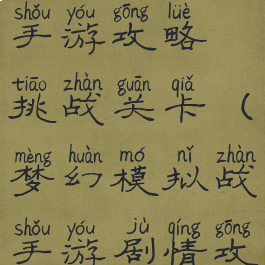 shǒu yóu gōng lüè
手游攻略
tiāo zhàn guān qiǎ
挑战关卡（
mèng huàn mó nǐ zhàn
梦幻模拟战
shǒu yóu jù qíng gōng
手游剧情攻